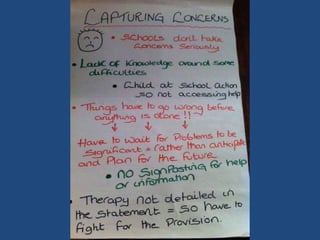 CAPTURING CONCERNS
• Schools don't take
Concerns Seriously
• Lack of Knowledge around some
difficulties
• Child at School Action
so not accessing help
• Things have to go wrong before
anything is done!!
Have to wait for Problems to be
Significant = rather than anticipate
and Plan for the future
• No SignPosting for help
or information
• Therapy not detailed in
the Statement = so have to
fight for the Provision.